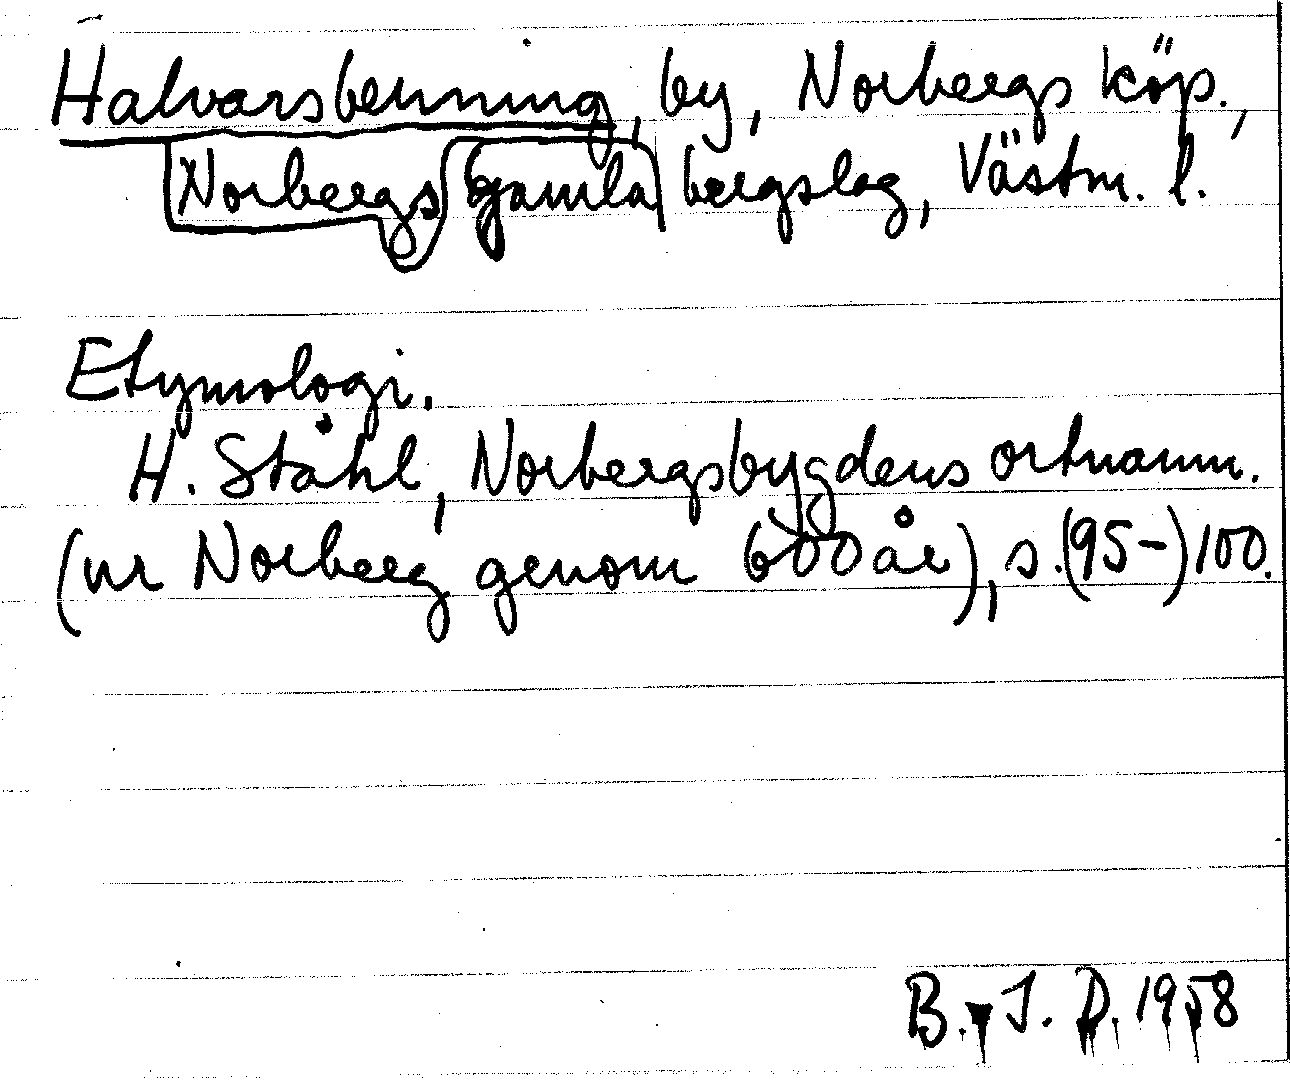 Halvarsbenning, by, Norbergs köp.,
Norbergs gamla bergslag, Västm. l.
Etymologi.
H. Ståhl, Norbergsbygdens ortnamn.
(ur Norberg genom 600 år), s. (95-)100.
B. J. D. 1958